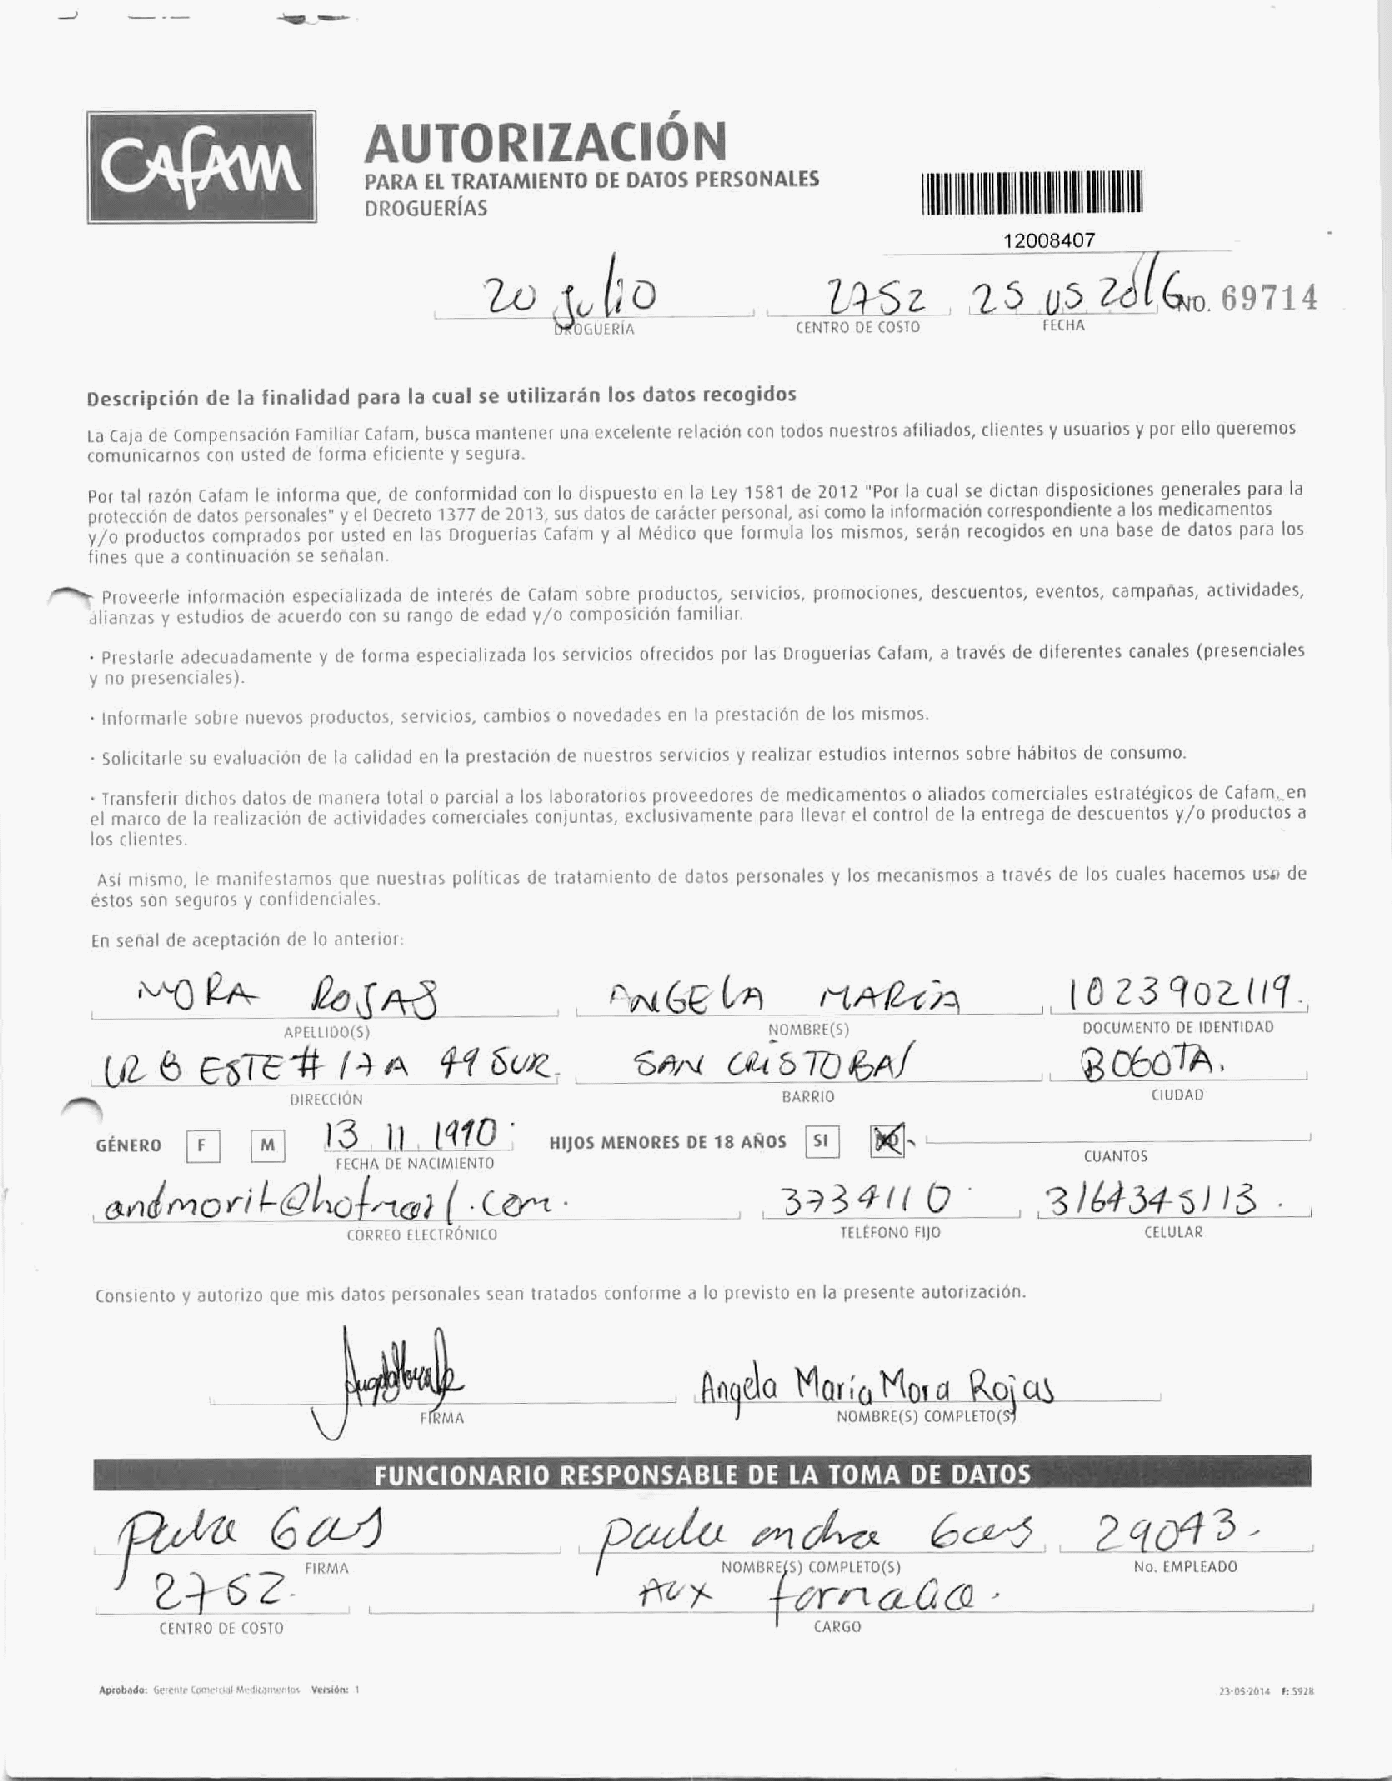 CAFAM
AUTORIZACIÓN
PARA EL TRATAMIENTO DE DATOS PERSONALES
DROGUERÍAS
12008407
20 julio 2752 25 05 2016 No. 69714
DROGUERÍA CENTRO DE COSTO FECHA
Descripción de la finalidad para la cual se utilizarán los datos recogidos
La Caja de Compensación Familiar Cafam, busca mantener una excelente relación con todos nuestros afiliados, clientes y usuarios y por ello queremos
comunicarnos con usted de forma eficiente y segura.
Por tal razón Cafam le informa que, de conformidad con lo dispuesto en la Ley 1581 de 2012 "Por la cual se dictan disposiciones generales para la
protección de datos personales" y el Decreto 1377 de 2013, sus datos de carácter personal, así como la información correspondiente a los medicamentos
y/o productos comprados por usted en las Droguerías Cafam y al Médico que formula los mismos, serán recogidos en una base de datos para los
fines que a continuación se señalan.
Proveerle información especializada de interés de Cafam sobre productos, servicios, promociones, descuentos, eventos, campañas, actividades,
alianzas y estudios de acuerdo con su rango de edad y/o composición familiar.
· Prestarle adecuadamente y de forma especializada los servicios ofrecidos por las Droguerías Cafam, a través de diferentes canales (presenciales
y no presenciales).
· Informarle sobre nuevos productos, servicios, cambios o novedades en la prestación de los mismos.
· Solicitarle su evaluación de la calidad en la prestación de nuestros servicios y realizar estudios internos sobre hábitos de consumo.
· Transferir dichos datos de manera total o parcial a los laboratorios proveedores de medicamentos o aliados comerciales estratégicos de Cafam, en
el marco de la realización de actividades comerciales conjuntas, exclusivamente para llevar el control de la entrega de descuentos y/o productos a
los clientes.
Así mismo, le manifestamos que nuestras políticas de tratamiento de datos personales y los mecanismos a través de los cuales hacemos uso de
éstos son seguros y confidenciales.
En señal de aceptación de lo anterior:
MORA ROJAS ANGELA MARIA 1023902119.
APELLIDO(S) NOMBRE(S) DOCUMENTO DE IDENTIDAD
ESTE # 17 A 49 SUR. SAN CRISTOBAL BOGOTA.
DIRECCIÓN BARRIO CIUDAD
GÉNERO F M 13 11 1990 HIJOS MENORES DE 18 AÑOS SI NO
FECHA DE NACIMIENTO CUANTOS
andmorit@hotmail.com. 3734110 3164345113.
CORREO ELECTRÓNICO TELÉFONO FIJO CELULAR
Consiento y autorizo que mis datos personales sean tratados conforme a lo previsto en la presente autorización.
Angela María Mora Rojas
FIRMA NOMBRE(S) COMPLETO(S)
FUNCIONARIO RESPONSABLE DE LA TOMA DE DATOS
29043.
FIRMA NOMBRE(S) COMPLETO(S) No. EMPLEADO
2752. AUX
CENTRO DE COSTO CARGO
Aprobado: Gerente Comercial Medicamentos Versión: 1 23-05-2014 F: 5928